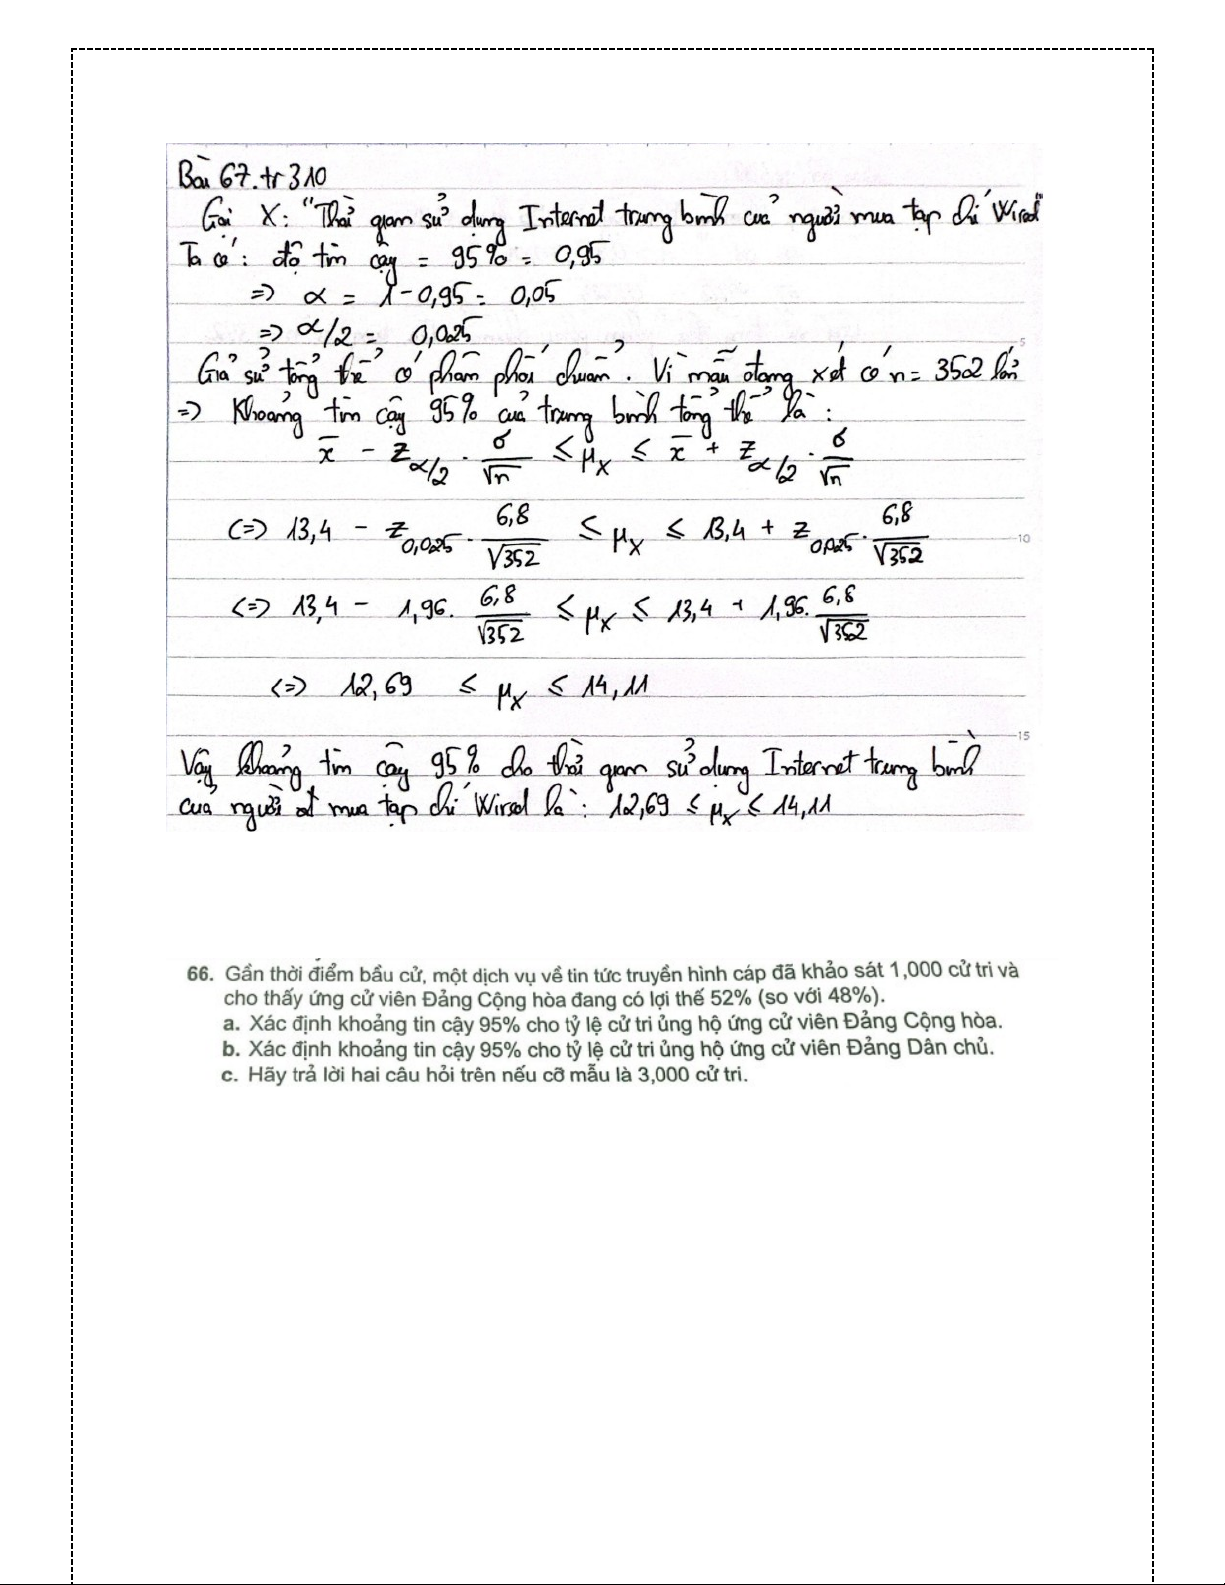 Bài 67.tr 310
Gọi X: "Thời gian sử dụng Internet trung bình của người mua tạp chí Wired"
Ta có: độ tin cậy = 95% = 0,95
=> α = 1 - 0,95 = 0,05
=> α/2 = 0,025
Giả sử tổng thể có phân phối chuẩn. Vì mẫu đang xét có n = 352 lớn
=> Khoảng tin cậy 95% của trung bình tổng thể là:
x̄ - z_{α/2} . σ/√n ≤ μ_X ≤ x̄ + z_{α/2} . σ/√n
(=) 13,4 - z_{0,025} . 6,8/√352 ≤ μ_X ≤ 13,4 + z_{0,025} . 6,8/√352
<=> 13,4 - 1,96. 6,8/√352 ≤ μ_X ≤ 13,4 + 1,96. 6,8/√352
<=> 12,69 ≤ μ_X ≤ 14,11
Vậy khoảng tin cậy 95% cho thời gian sử dụng Internet trung bình
của người mua tạp chí Wired là: 12,69 ≤ μ_X ≤ 14,11
5
10
15
66. Gần thời điểm bầu cử, một dịch vụ về tin tức truyền hình cáp đã khảo sát 1,000 cử tri và
cho thấy ứng cử viên Đảng Cộng hòa đang có lợi thế 52% (so với 48%).
a. Xác định khoảng tin cậy 95% cho tỷ lệ cử tri ủng hộ ứng cử viên Đảng Cộng hòa.
b. Xác định khoảng tin cậy 95% cho tỷ lệ cử tri ủng hộ ứng cử viên Đảng Dân chủ.
c. Hãy trả lời hai câu hỏi trên nếu cỡ mẫu là 3,000 cử tri.